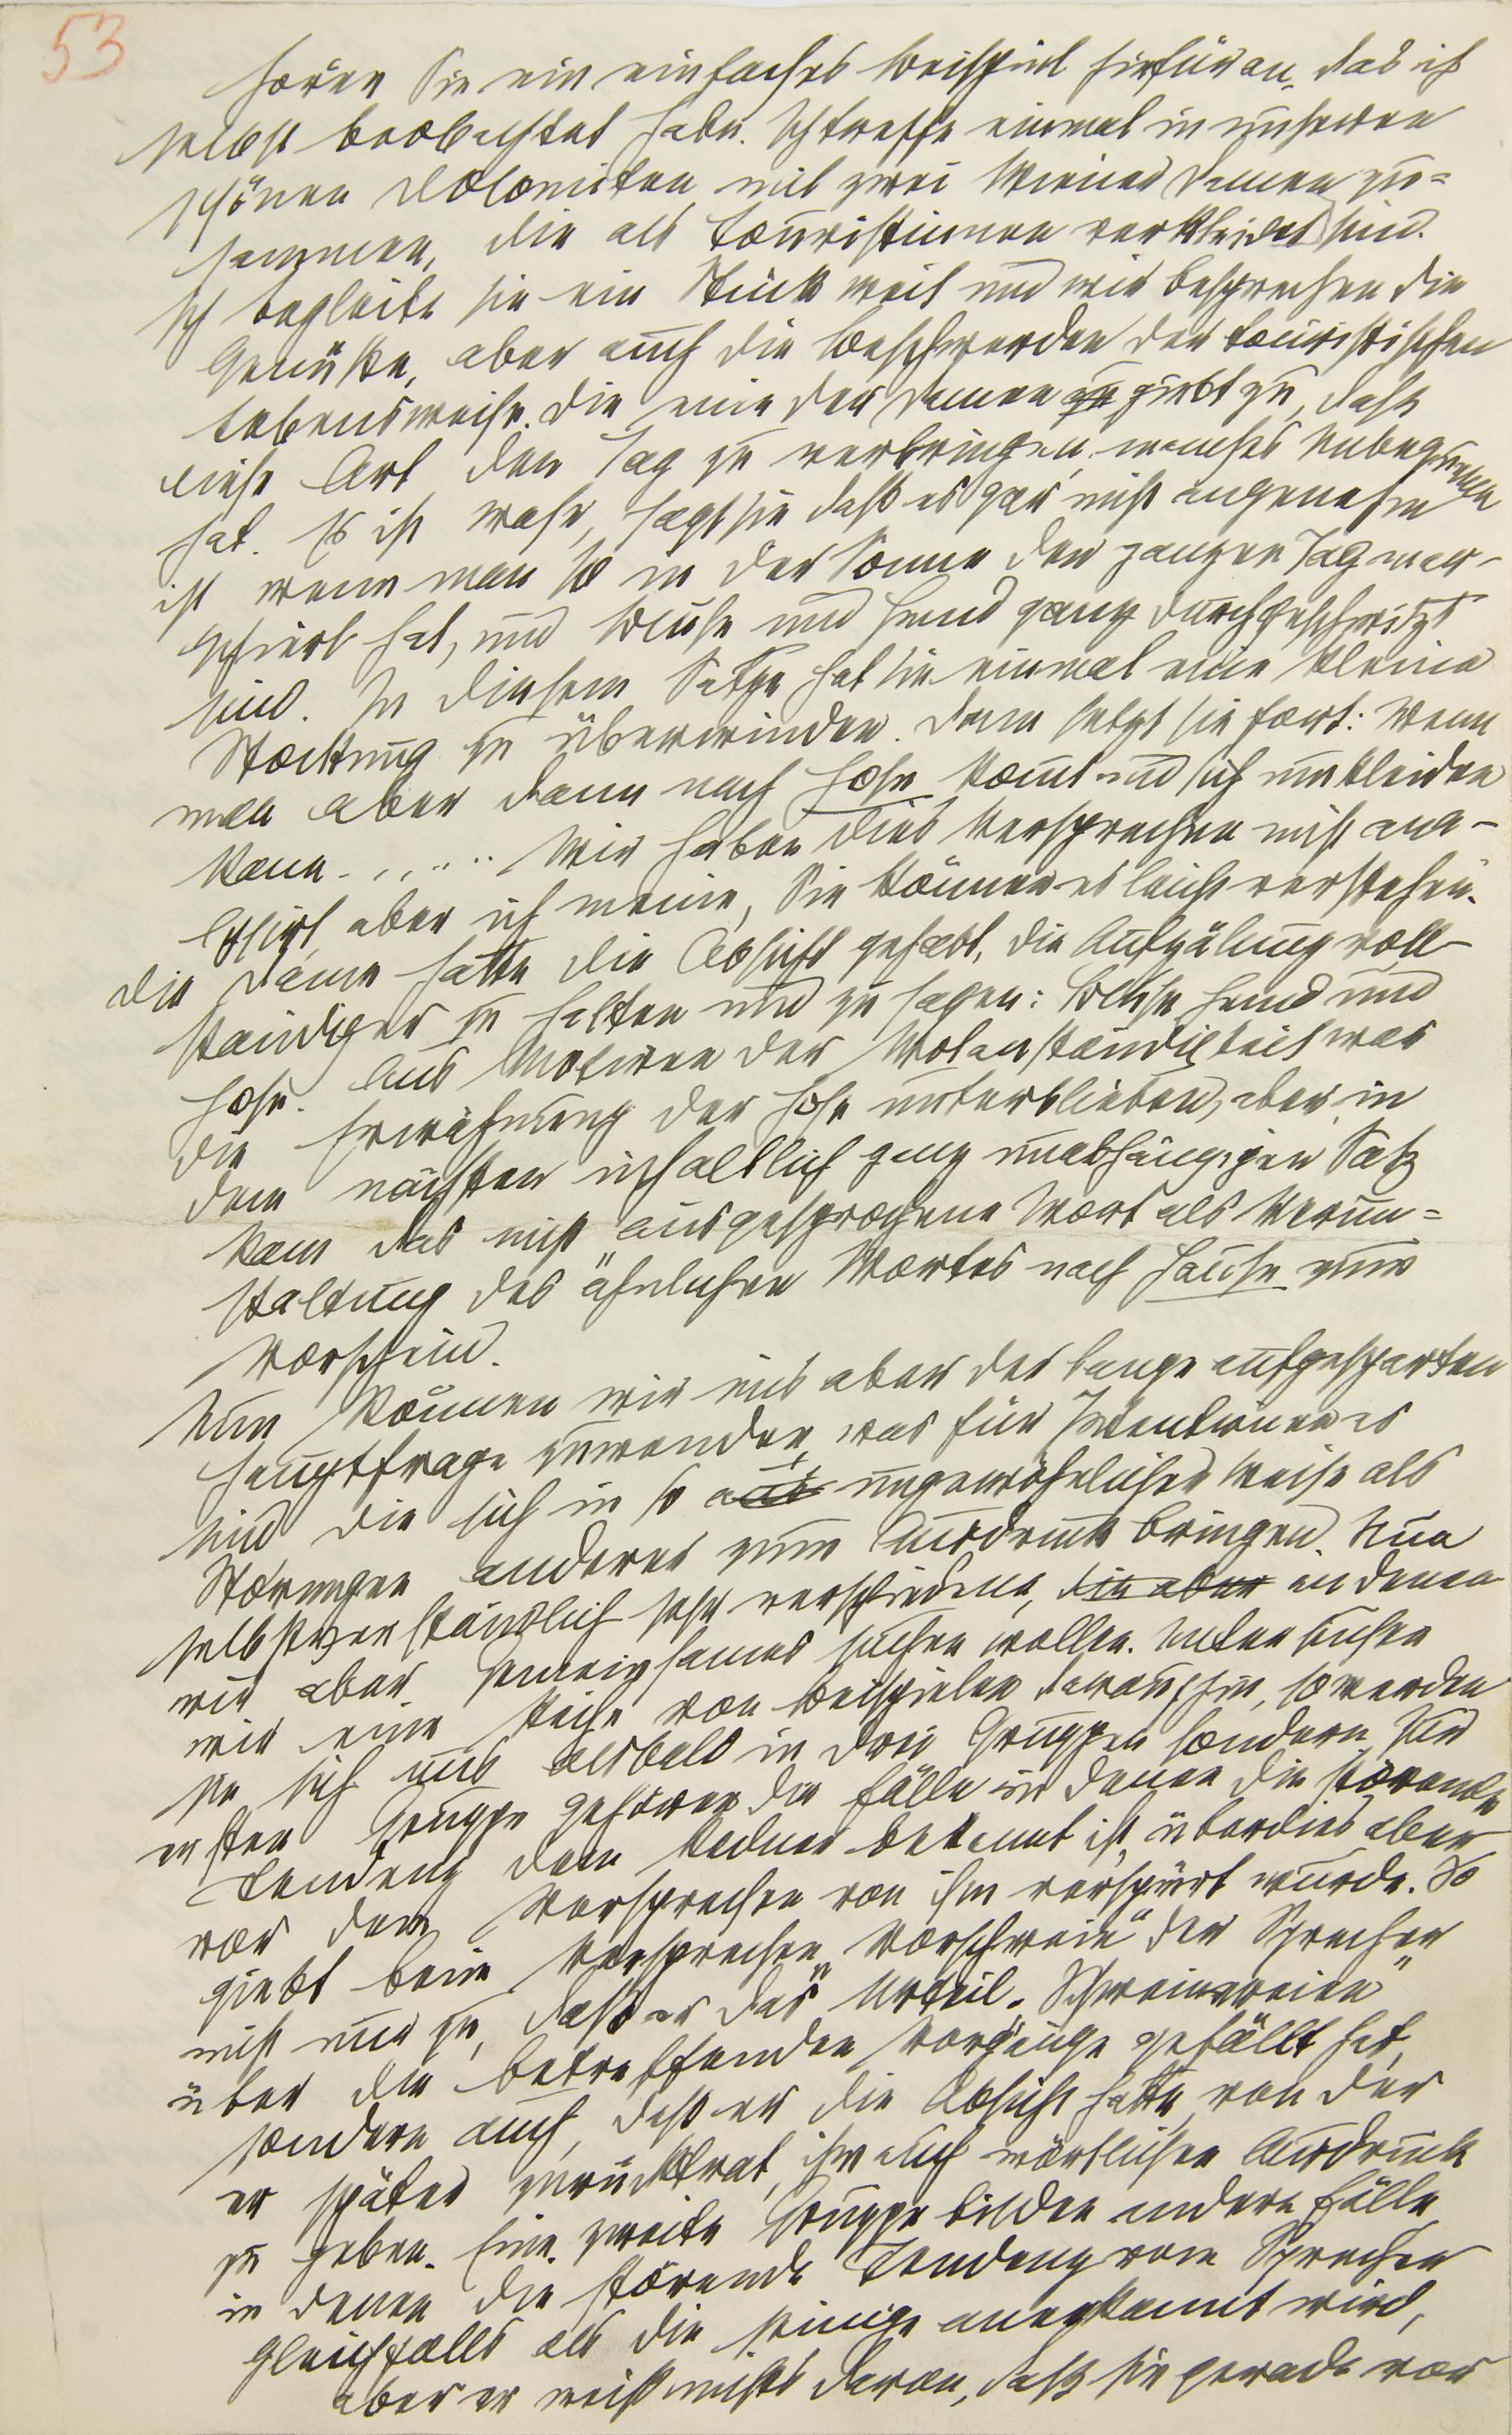 53
Hören Sie ein einfaches Beispiel hiefür an, das ich
selbst beobachtet habe. Ich treffe einmal in unseren
schönen Dolomiten mit zwei Wiener Damen zu=
sammen, die als Touristinnen verkleidet sind.
Ich begleite sie ein Stück weit und wir besprechen die
Genüsse, aber auch die Beschwerden der touristischen
Lebensweise. Die eine der Damen zu giebt zu, daß
diese Art den Tag zu verbringen, manches Unbequeme
hat. Es ist wahr, sagt sie daß es gar nicht angenehm
ist wenn man so in der Sonne den ganzen Tag mar-
schiert hat, und Bluse und Hemd ganz durchgeschwitzt
sind. In diesem Satze hat sie einmal eine kleine
Stockung zu überwinden. Dann setzt sie fort: Wenn
man aber dann nach Hose kommt und sich umkleiden
kann..... Wir haben dies Versprechen nicht ana-
lysirt, aber ich meine, Sie können es leicht verstehen.
Die Dame hatte die Absicht gehabt, die Aufzälung voll-
ständiger zu halten und zu sagen: Bluse Hemd und
Hose. Aus Motiven der Wolanständigkeit war
die Erwähnung der Hose unterblieben, aber in
dem nächsten inhaltlich ganz unabhängigen Satz
kam das nicht ausgesprochene Wort als Verun=
staltung des ähnlichen Wortes nach Hause zum
Vorschein.
Nun können wir uns aber der lange aufgesparten
Hauptfrage zuwenden, was für Intentionen es
sind die sich in so ungewöhnlicher Weise als
Störungen anderer zum Ausdruck bringen. Nun
selbstverständlich sehr verschiedene, die aber in denen
wir aber Gemeinsames suchen wollen. Untersuchen
wir eine Reihe von Beispielen daraufhin, so werden
sie sich uns alsbald in drei Gruppen sondern. Zur
ersten Gruppe gehören die Fälle in denen die störende
Tendenz dem Redner bekannt ist, überdies aber
vor dem Versprechen von ihm verspürt wurde. So
giebt beim Versprechen „Vorschwein“ der Sprecher
nicht nur zu, daß er das Urteil „Schweinereien“
über die betreffenden Vorgänge gefällt hat,
sondern auch, daß er die Absicht hatte, von der
er später zurücktrat, ihm auch wörtlichen Ausdruck
zu geben. Eine zweite Gruppe bilden andere Fälle
in denen die störende Tendenz vom Sprecher
gleichfalls als die seinige anerkannt wird,
aber er weiß nichts davon, daß sie gerade vor